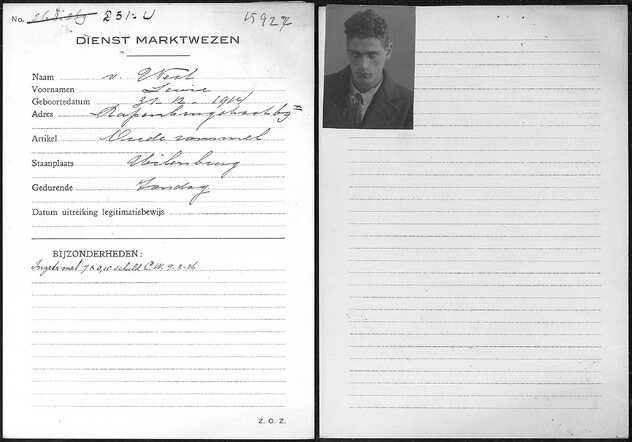 No. 251. U 15927
DIENST MARKTWEZEN
Naam v. West
Voornamen
Geboortedatum 31-12-1914
Adres
Artikel Oude rommel
Staanplaats Uilenburg
Gedurende Zondag
Datum uitreiking legitimatiebewijs
BIJZONDERHEDEN:
schuld C.W. 9-3-36
Z. O. Z.